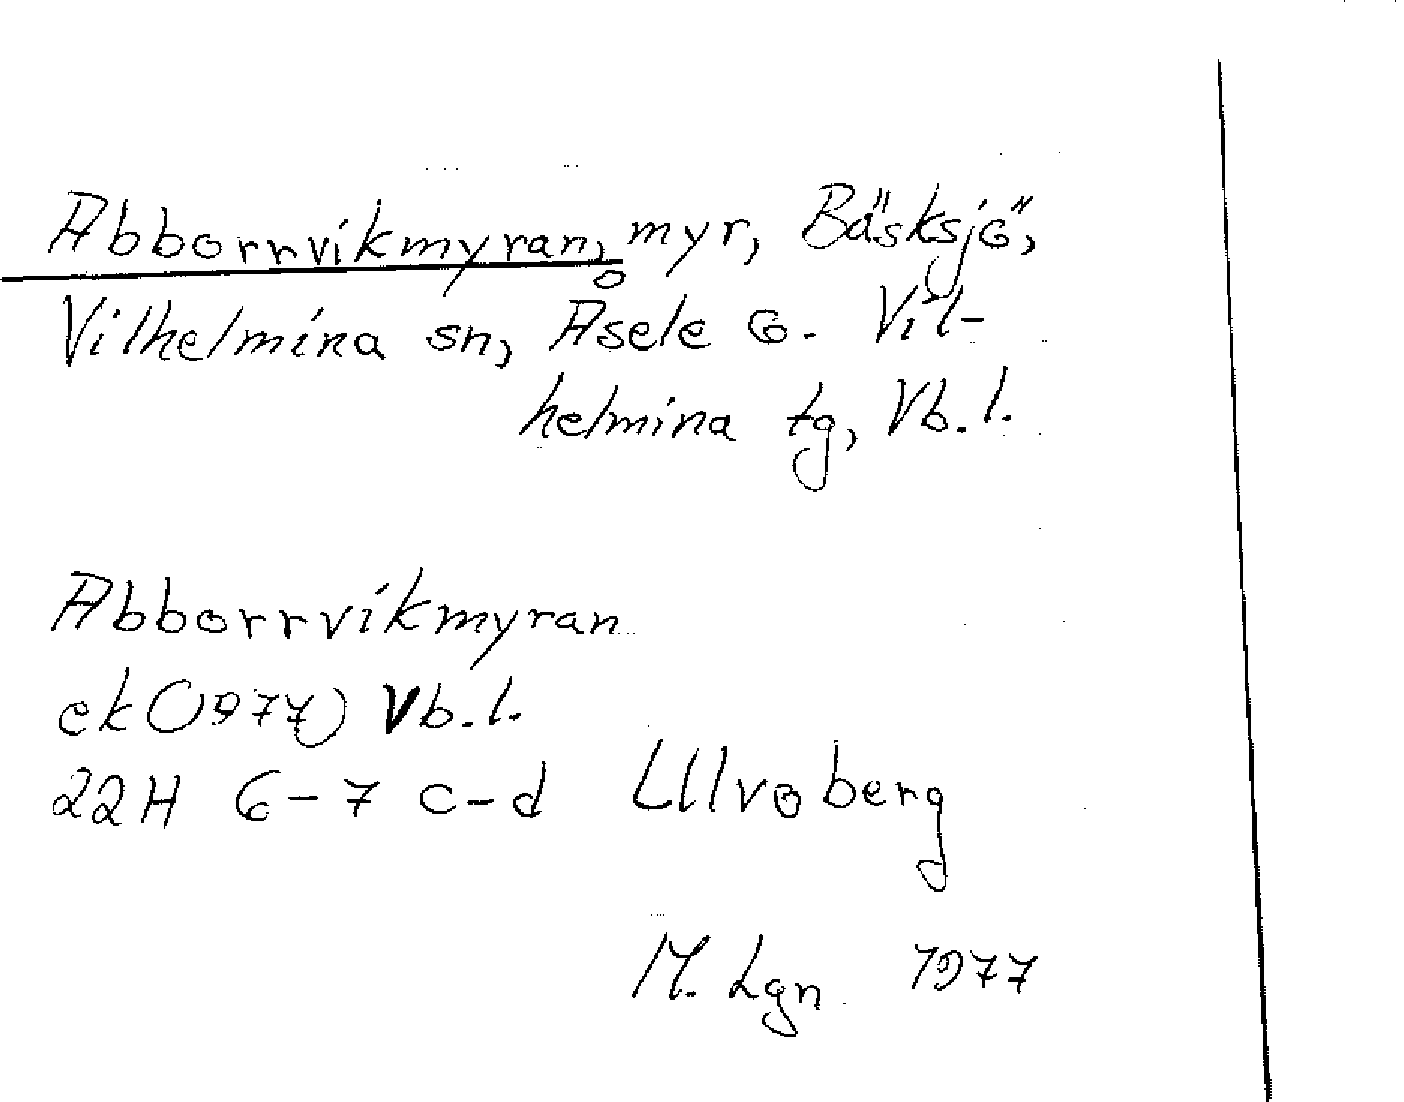 Abborrvikmyran, myr, Bäsksjö,
Vilhelmina sn, Åsele o. Vil-
helmina tg, Vb. l.
Abborrvikmyran
ek (1977) Vb. l.
22H 6-7 c-d Ulvoberg
M. Lgn 1977